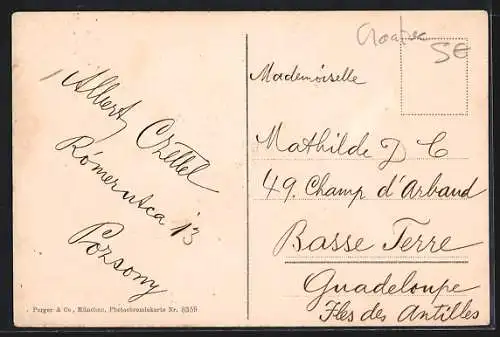 Croatie
5€
Albert Czettel
Rómerutca 13
Pozsony
Mademoiselle
Mathilde D C
49. Champ d'Arbaud
Basse Terre
Guadeloupe
Iles des Antilles
Purger & Co., München, Photochromiekarte Nr. 8359